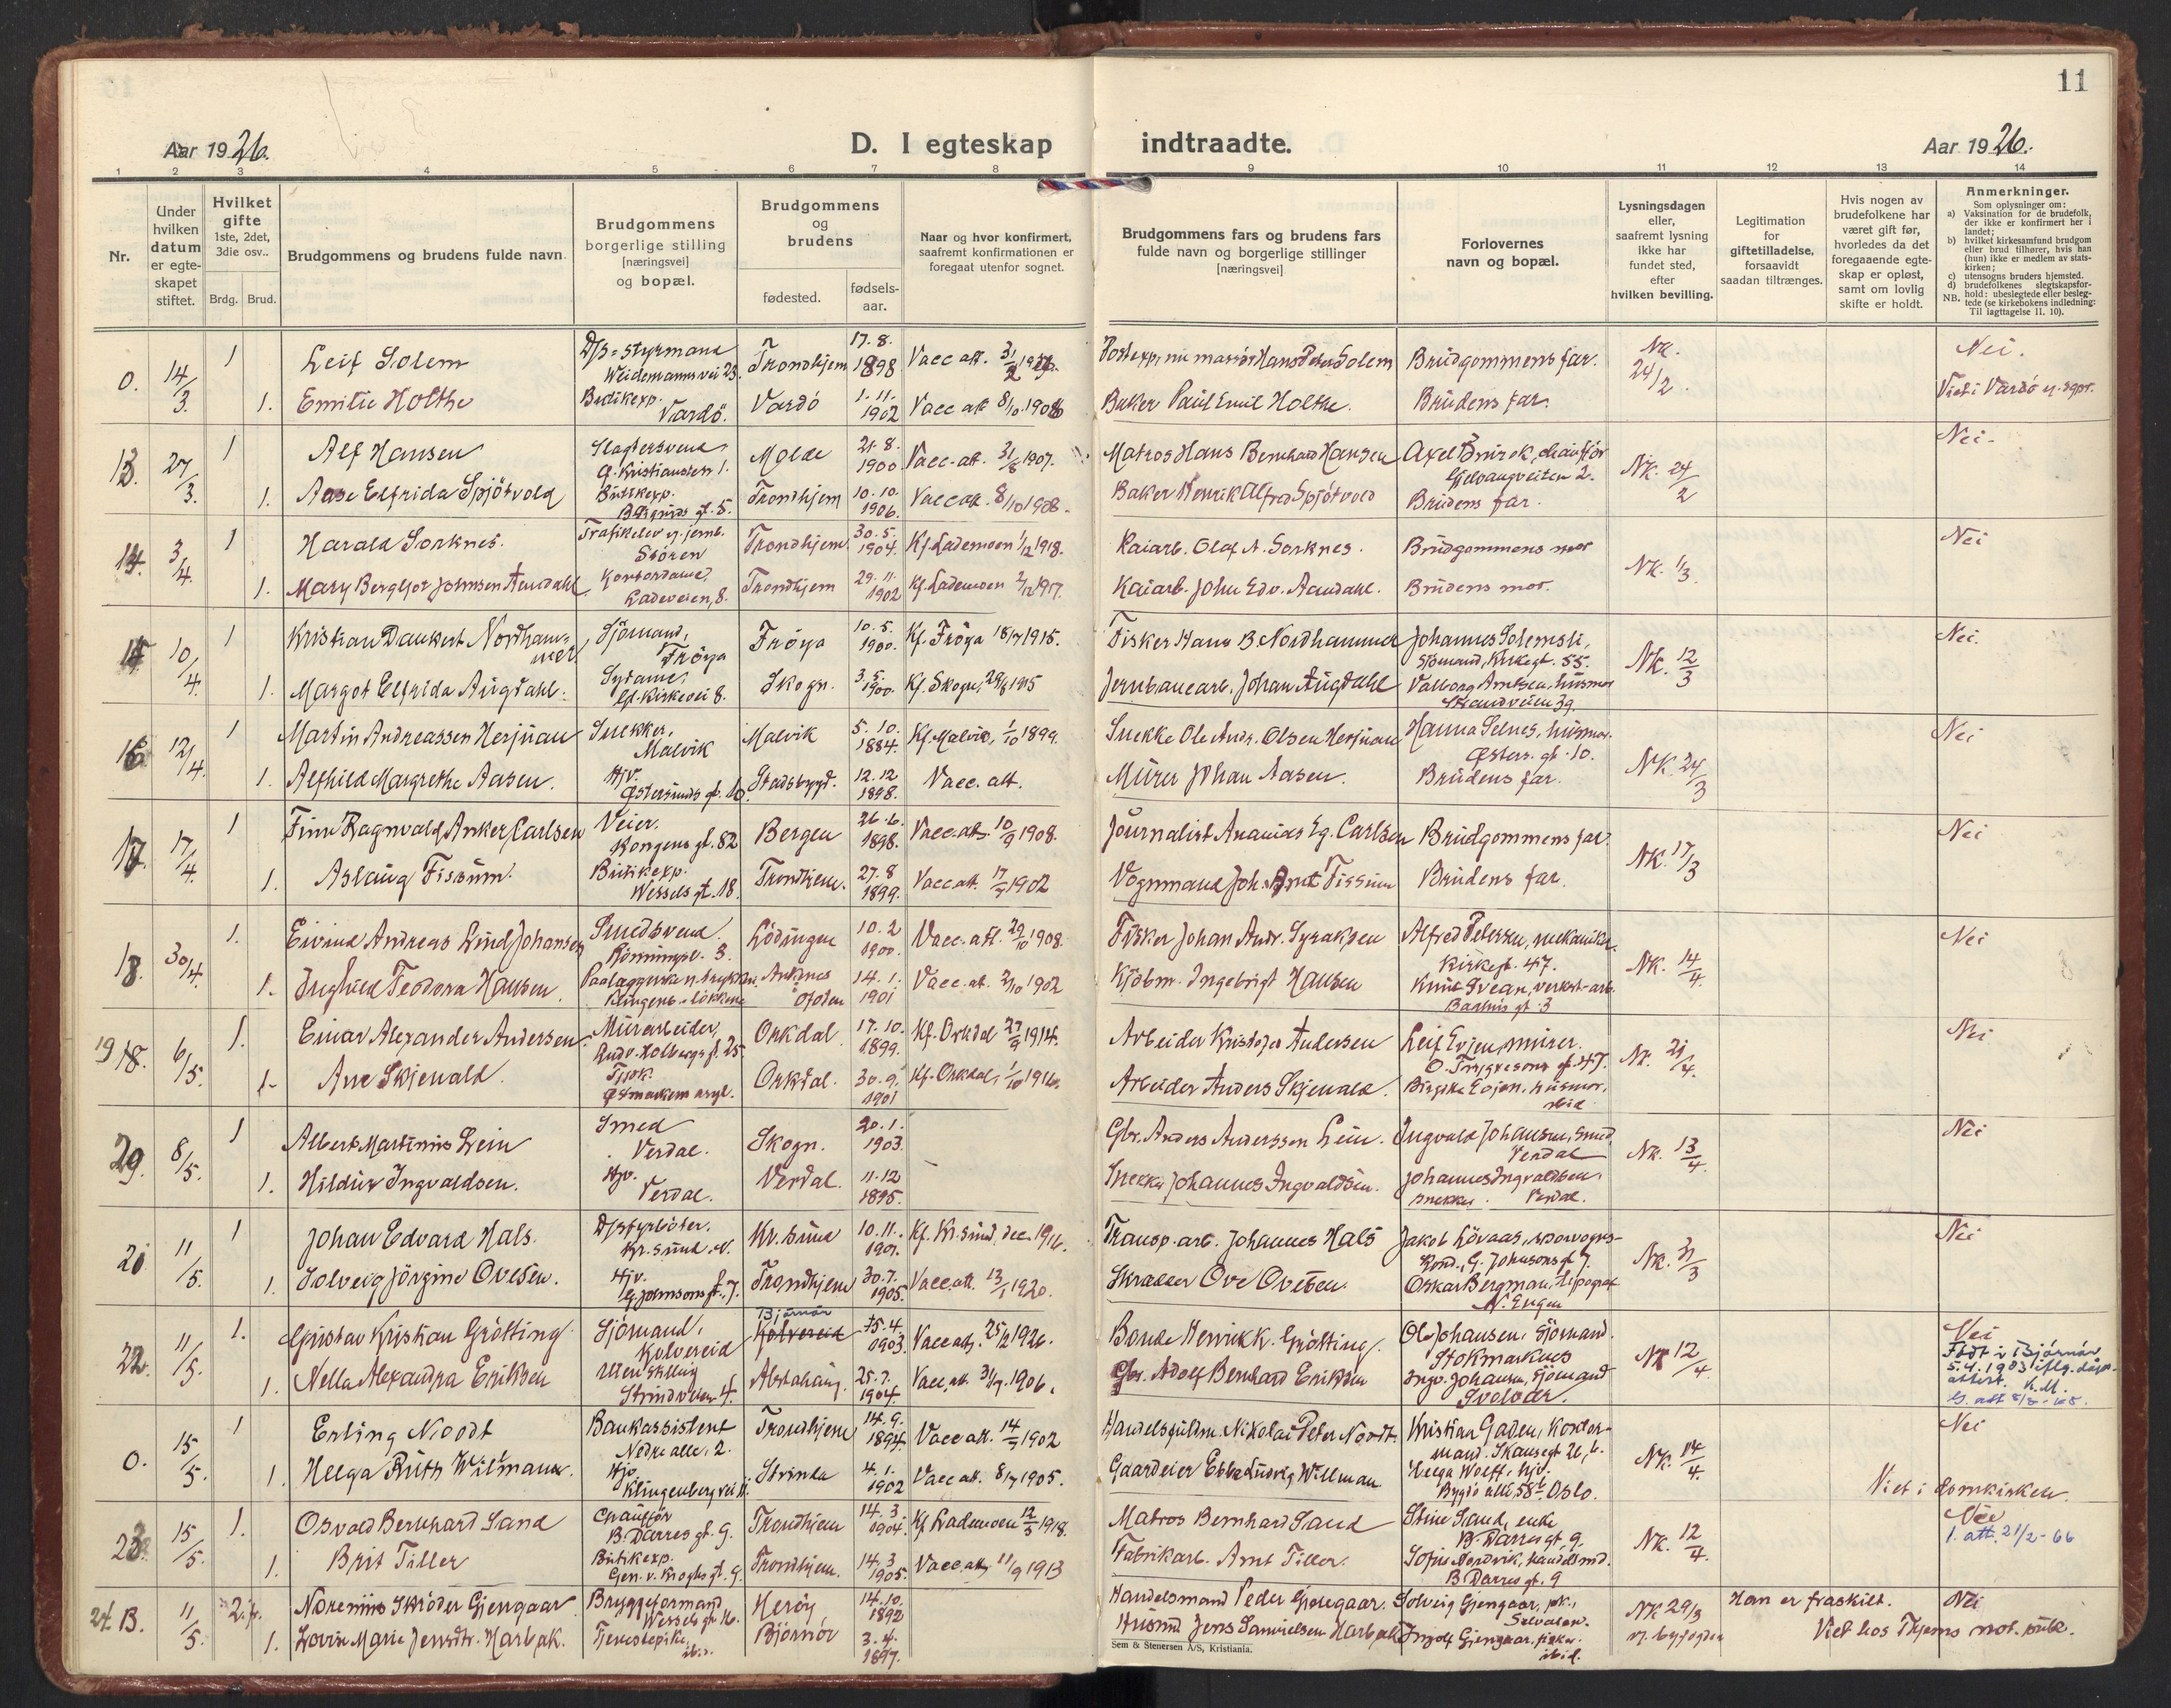 11
Aar 1926.
D. I egteskap
indtraadte.
Aar 1926.
1 2 3 4 5 6 7 8 9 10 11 12 13 14
Nr.
Under hvilken datum er egteskapet stiftet.
Hvilket gifte 1ste, 2det, 3die osv..
Brdg. Brud.
Brudgommens og brudens fulde navn.
Brudgommens borgerlige stilling [næringsvei] og bopæl.
Brudgommens og brudens
fødested.
fødsels-aar.
Naar og hvor konfirmert, saafremt konfirmationen er foregaat utenfor sognet.
Brudgommens fars og brudens fars fulde navn og borgerlige stillinger [næringsvei]
Forlovernes navn og bopæl.
Lysningsdagen eller, saafremt lysning ikke har fundet sted, efter hvilken bevilling.
Legitimation for giftetilladelse, forsaavidt saadan tiltrænges.
Hvis nogen av brudefolkene har været gift før, hvorledes da det foregaaende egteskap er opløst, samt om lovlig skifte er holdt.
Anmerkninger.
Som oplysninger om:
a) Vaksination for de brudefolk, der ikke er konfirmert her i landet;
b) hvilket kirkesamfund brudgom eller brud tilhører, hvis han (hun) ikke er medlem av statskirken;
c) utensogns bruders hjemsted.
d) brudefolkenes slegtskapsforhold: ubeslegtede eller beslegtede (se kirkebokens indledning:
NB. Til iagttagelse II. 10).
0. 14/3. 1 Leif Solem D/S=styrmand Weidemannsvei 23. Trondhjem 17.8. 1898 Vacc att. Hans Peter Solem Brudgommens far. Nk. 24/2. Nei.
1. Emilie Holthe Butikexp. Vardö. Vardö 1.11. 1902 Vacc att 8/10. Baker Paul Emil Holthe. Brudens far. Viet i Vardö
13. 27/3. 1 Alf Hansen Slagtersvend Molde 21.8. 1900 Vacc. att. 31/8 1907. Matros Hans Bernhard Hansen Axel chaufför 2. Nk. 24/2 Nei.
1. Aase Elfrida Spjötvold Butikexp. gt. 5. Trondhjem 10.10. 1906. Vacc att. 8/10 1908. Baker Henrik Alfred Spjötvold Brudens far.
14. 3/4. 1 Harald Sorknes. Trafikelev v. jernb. Stören Trondhjem 30.5. 1904. Kf. Lademoen 1/12 1918. Kaiarb. Olaf A. Sorknes. Brudgommens mor Nk. 1/3. Nei
1. Mary Bergljot Johnsen Aandahl Kontordame, Ladeveien, 8. Trondhjem 29.11. 1902 Kf. Lademoen 2/12 1917. Kaiarb. John Edv. Aandahl. Brudens mor.
15. 10/4. 1 Kristian Daukert Nordhammer Sjömand, Fröya Fröya 10.5. 1900. Kf. Fröya 18/7 1915. Fisker Hans B. Nordhammer Johannes Solemsli, Sjömand, Kirkegt. 55. Nk. 12/3 Nei.
1. Margot Elfrida Augdahl. Sydame, Gl. Kirkevei 8. Skogn. 3.5. 1900. Kf. Skogn, 1915 Jernbanearb. Johan Augdahl Valborg Arntsen, husmor Strandveien 39.
16 12/4. 1 Martin Andreassen Herjuau Snekker, Malvik Malvik 5.10. 1884. Kf. Malvik, 1/10 1899. Snekker Ole Andr. Olsen Herjuau Hanna Selnes, husmor. Østers. gt. 10. Nk. 24/3 Nei
1. Alfhild Margrethe Aasen. Hjv. Østersunds gt. 10. Stadsbygd. 12.12 1898. Vacc. att. Murer Johan Aasen. Brudens far.
17. 17/4. 1 Finn Ragnvald Anker Carlsen Veier. Kongens gt. 82 Bergen 26.6. 1898. Vacc. att. 10/9 1908. Journalist Ananias Eg. Carlsen Brudgommens far. Nk. 17/3 Nei
1. Aslaug Fissum. Butikexp. Wessels gt. 18. Trondhjem. 27.8 1899. Vacc att. 17/9 1902 Vognmand Joh. Arnt Fissum Brudens far.
18. 30/4. 1. Eivind Andreas Lind Johansen Smedsvend. Rönningsl. 3. Lödingen 10.2 1900. Vacc. att. 29/10 1908. Fisker Johan Andr. Syraksen Alfred Petersen, mekaniker. Kirkegt. 47. Nk. 14/4. Nei
1. Inghild Teodora Hansen Klingenb. lökken Ankenes Ofoten 14.1. 1901 Vacc. att. 2/10 1902 Kjöbm. Ingebrigt Hansen Knut Svean, verkst-arb. Bakhus gt. 3
19 18. 6/5. 1. Einar Alexander Andersen Murarbeider, Ludv. Holbergs gt. 25 Orkdal 17.10. 1899. Kf. Orkdal 27/9 1914. Arbeider Kristofer Andersen Leif Evjen, murer. O. Trygvesons gt. 47. Nk. 21/4. Nei
1. Ane Skjenald. Tjpk. Østmarkens asyl. Orkdal. 30.9. 1901 Kf. Orkdal, 1/10 1916. Arbeider Anders Skjenald. Birgitha Evjen, husmor, ibid
20. 8/5. 1 Albert Martinus Lein Smed Verdal. Skogn. 20.1. 1903. Gbr. Anders Anderssen Lein. Ingvald Johansen, smed Verdal Nk. 13/4. Nei
1. Hildur Ingvaldsen. Hjv. Verdal. Verdal. 11.12 1895. Snekker Johannes Ingvaldsen. Johannes Ingvaldsen, snekker. Verdal.
21 11/5. 1 Johan Edvard Hals. D/S fyrböter. Kr. sund. N. Kr. sund 10.11. 1901. Kf. Kr. Sund, dec. 1916. Transp. arb. Johannes Hals Jakob Lövaas, sporvognskond., G. Johnsons gt. 7. Nk. 31/3 Nei
1. Solveig Jörgine Ovesen. Hjv. G. Johnsons gt. 7. Trondhjem 30.7. 1905. Vacc att. 13/1 1920. Skrædder Ove Ovesen. Oskar Bergman, typograf N. Engen
22. 11/5. 1. Gustav Kristian Grötting Sjömand, Kolvereid Bjørnør Kolvereid 15.4. 1903. Vacc att. 25/2 1926. Bonde Henrik K. Grötting. Ole Johansen, sjömand. Stokmarknes Nk 12/4. Nei Født i Bjørnør 5.4.1903 iflg. dåpsattest. K.M.
1. Nella Alexandra Eriksen Uten stilling Strindveien 4. Abelshaug. 25.7. 1904. Vacc. att. 31/7. 1906. Gbr. Adolf Bernhard Eriksen Ingv. Johansen, sjömand Svolvær.
0. 15/5. 1 Erling Noodt Bankassistent Nedre alle, 2. Trondhjem 14.9. 1894 Vacc att. 14/9 1902 Handelsfuldm. Nikolai Peter Noodt. Kristian Gaden, kontormand. Skansegt. 26, b. Nk. 14/4. Nei
1. Helga Ruth Wilmann. Hjv Klingenbergvei 11. Strinda 4.1. 1902 Vacc att. 8/7 1905. Gaardeier Ebbe Ludvig Willman Helga Wolff, hjv. Bygdø allé, 58 Oslo. Viet i domkirken.
23. 15/5. 1. Osvald Bernhard Sand Chauffør B. Darres gt. 9. Trondhjem 14.3. 1904. Kf. Lademoen 12/5 1918. Matros Bernhard Sand Stine Sand, enke B. Darres gt. 9. Nk. 12/4. Nei 1. att. 21/2-66
1. Brit Tiller Butikexp. Gen. v. Kroghs gt. 9. Trondhjem. 14.3 1905. Vacc att. 11/9 1913 Fabrikarb. Arnt Tiller. Sofus Nordvik, handelsmd. B. Darres gt. 9
24. B. 11/5. 2. fr. Norenius Skröder Gjengaar Bryggeformand Wessels gt. 16. Heröy 14.10. 1892 Handelsmand Peder Gjengaar. Solveig Gjengaar, pk., Selvalen. Nk 29/3 v. byfogden Han er fraskilt. Nei
1. Lovise Marie Jensdtr. Harbak. Tjenestepike, ib. Bjørnör 3.4. 1897. Husmd Jens Samuelsen Harbak Ingolf Gjengaar, fisker. ibid. Viet hos Thjems not. pub.
Sem & Stenersen A/S, Kristiania.